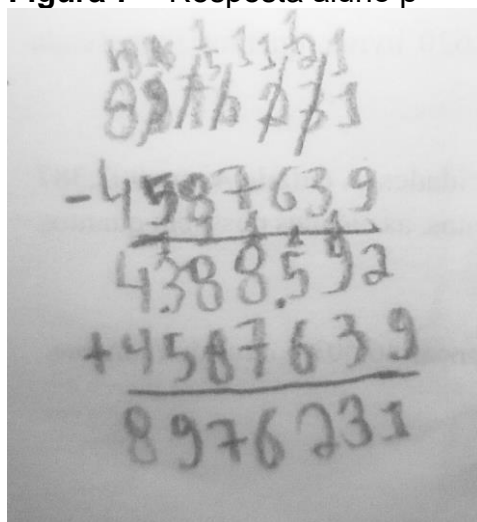 Figura – Resposta aluno
8976231
-4587639
4.388.592
+4587639
8976231